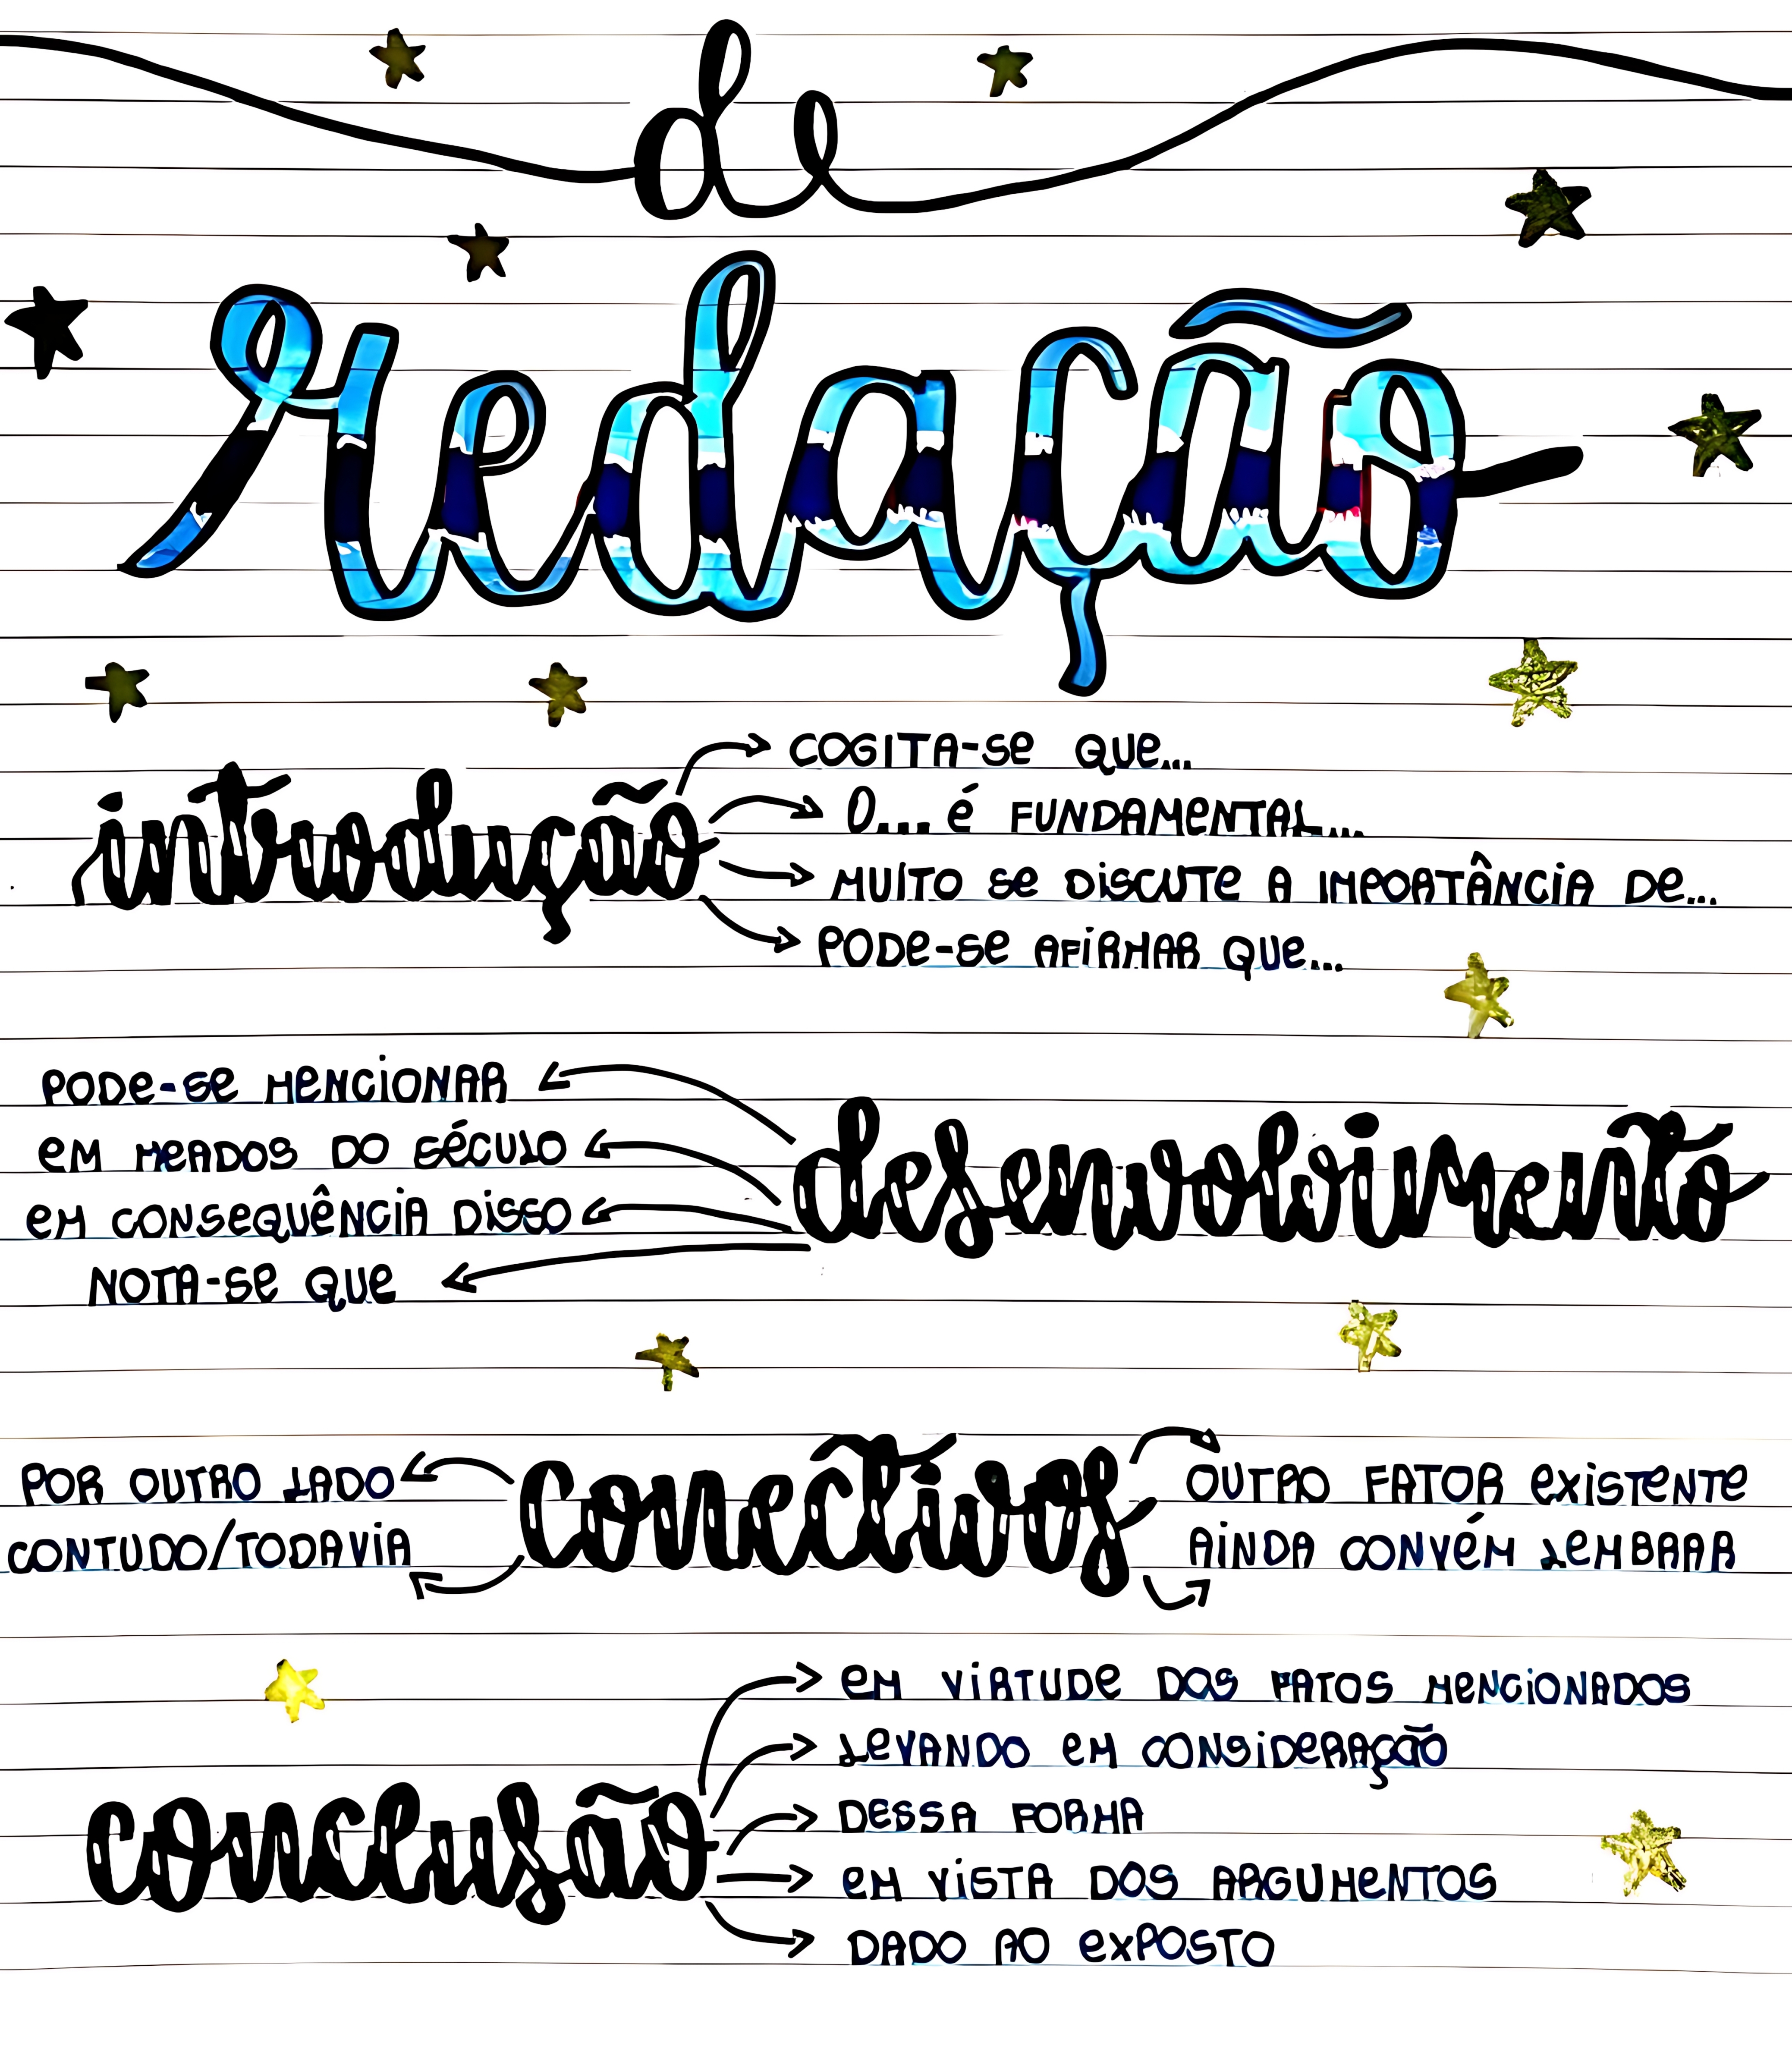 de
redação
introdução
COGITA-SE QUE...
O... É FUNDAMENTAL...
MUITO SE DISCUTE A IMPORTÂNCIA DE...
PODE-SE AFIRMAR QUE...
desenvolvimento
PODE-SE MENCIONAR
EM MEADOS DO SÉCULO
EM CONSEQUÊNCIA DISSO
NOTA-SE QUE
conectivos
POR OUTRO LADO
CONTUDO/TODAVIA
OUTRO FATOR EXISTENTE
AINDA CONVÉM LEMBRAR
conclusão
EM VIRTUDE DOS FATOS MENCIONADOS
LEVANDO EM CONSIDERAÇÃO
DESSA FORMA
EM VISTA DOS ARGUMENTOS
DADO AO EXPOSTO